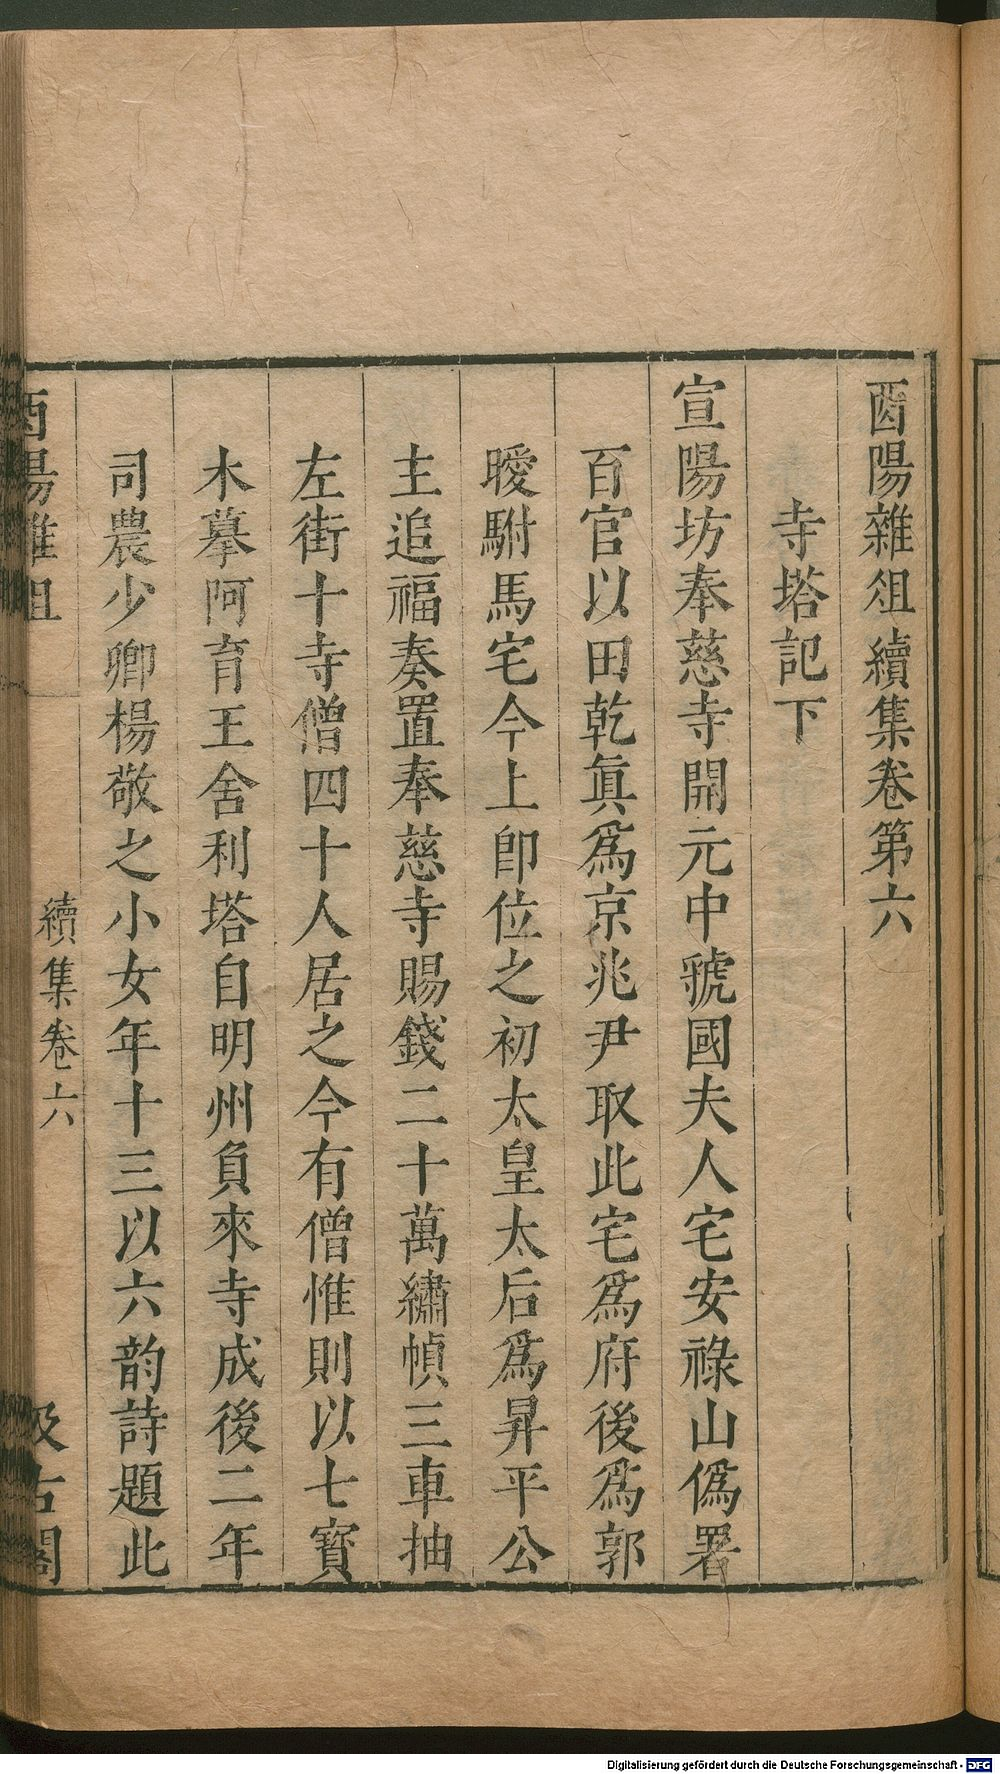 酉陽雜俎續集卷第六
寺塔記下
宣陽坊奉慈寺開元中虢國夫人宅安祿山僞署
百官以田乾眞爲京兆尹取此宅爲府後爲郭
曖駙馬宅今上卽位之初太皇太后爲昇平公
主追福奏置奉慈寺賜錢二十萬繡幀三車抽
左街十寺僧四十人居之今有僧惟則以七寶
木摹阿育王舍利塔自明州負來寺成後二年
司農少卿楊敬之小女年十三以六韵詩題此
酉陽雜俎
續集卷六
汲古閣
Digitalisierung gefördert durch die Deutsche Forschungsgemeinschaft - DFG